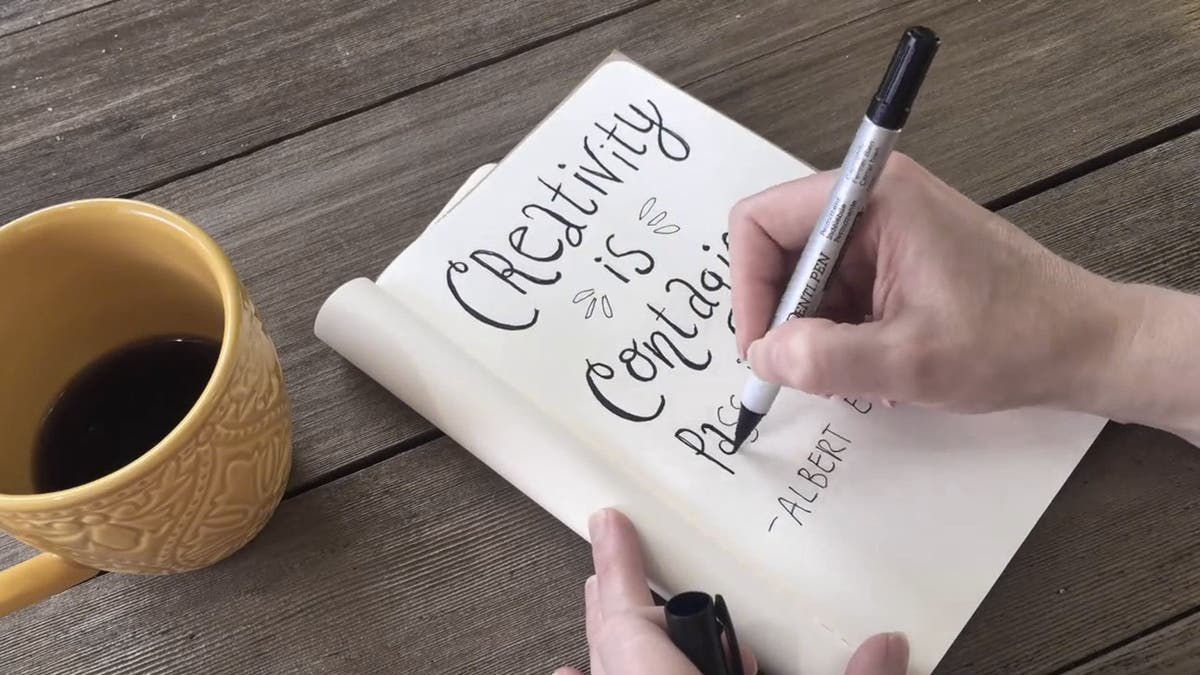 Creativity
is
Contagi
Pass
-ALBERT E
PENTI.PEN